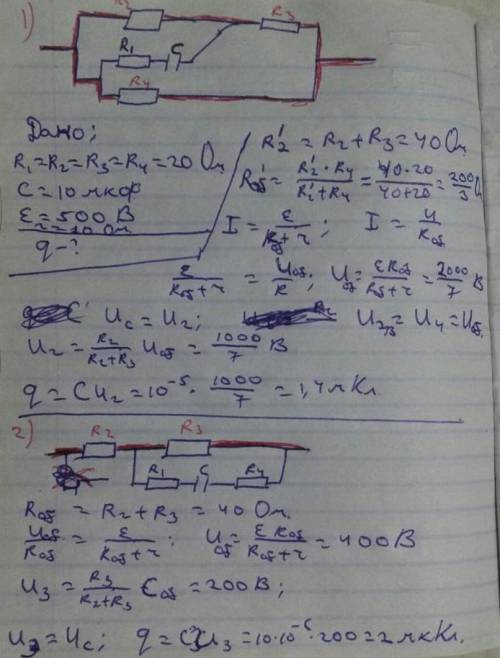 1)
R2
R3
R1
C
R4
Дано;
R1=R2=R3=R4=20 Ом
C=10 мкф
ε=500 В
r=10 Ом
q-?
R2' = R2+R3=40 Ом
Rоб' = R2'·R4 / R2'+R4 = 40·20 / 40+20 = 200/3 Ом
I = ε / Rоб+r ; I = U / Rоб
ε / Rоб+r = Uоб / R ; Uоб = εRоб / Rоб+r = 2000/7 В
Uc = U2; U23 = U4 = Uоб.
U2 = R2 / R2+R3 Uоб = 1000/7 В
q = CU2 = 10⁻⁵ · 1000/7 = 1,4 мКл
2)
R2
R3
R1
C
R4
Rоб = R2+R3 = 40 Ом.
Uоб / Rоб = ε / Rоб+r ; Uоб = εRоб / Rоб+r = 400 В
U3 = R3 / R2+R3 εоб = 200 В;
U3 = Uc; q = CU3 = 10·10⁻⁶·200 = 2 мкКл.